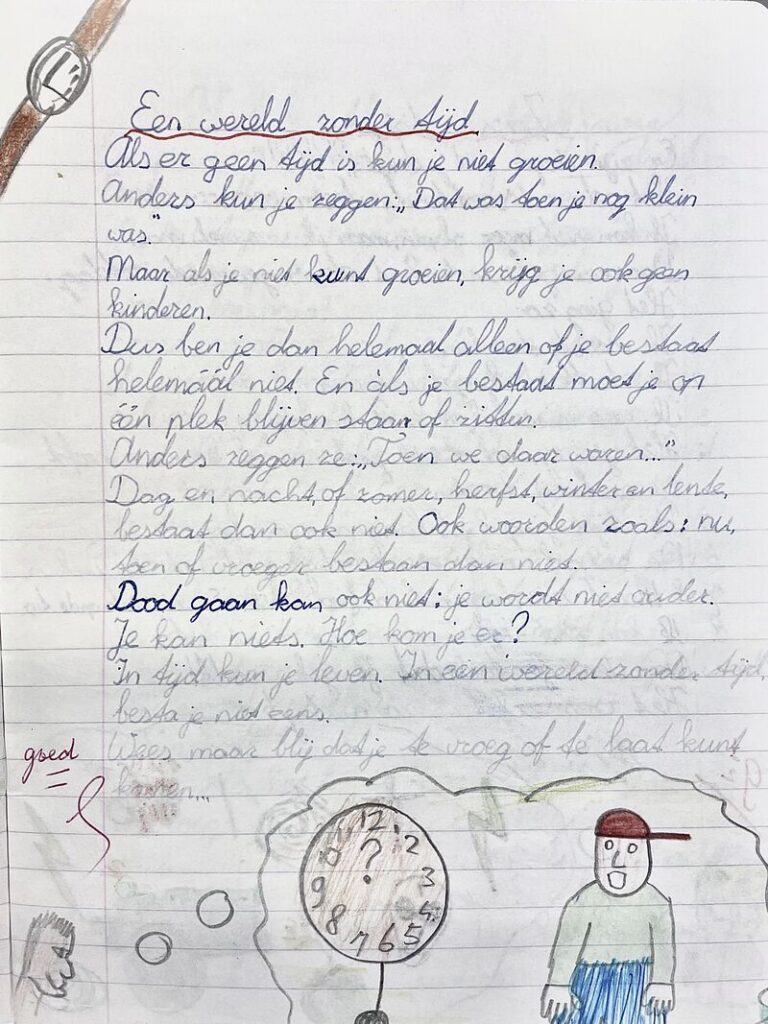 Een wereld zonder tijd
Als er geen tijd is kun je niet groeien.
Anders kun je zeggen: „Dat was toen je nog klein
was."
Maar als je niet kunt groeien, krijg je ook geen
kinderen.
Dus ben je dan helemaal alleen of je bestaat
helemáál niet. En àls je bestaat moet je op
één plek blijven staan of zitten.
Anders zeggen ze: „Toen we daar waren..."
Dag en nacht, of zomer, herfst, winter en lente,
bestaat dan ook niet. Ook woorden zoals: nu,
toen of vroeger bestaan dan niet.
Dood gaan kan ook niet: je wordt niet ouder.
Je kan niets. Hoe kom je er?
In tijd kun je leven. In een wereld zonder tijd,
besta je niet eens.
Wees maar blij dat je te vroeg of te laat kunt
komen...
goed
12
1
2
3
4
5
6
7
8
9
?